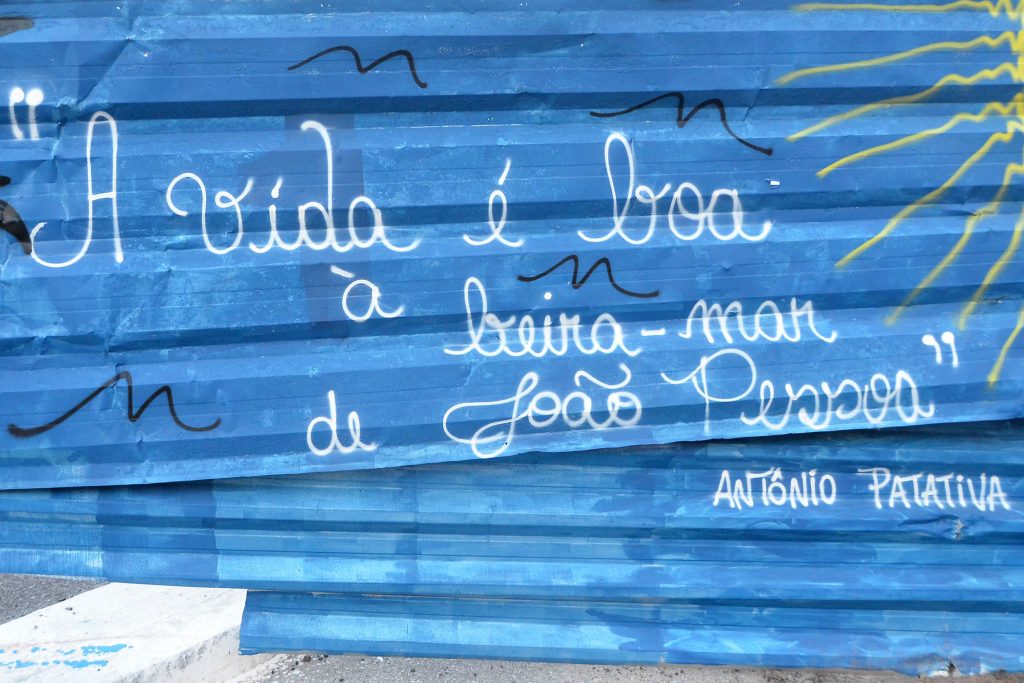 "A vida é boa
à beira-mar
de João Pessoa"
ANTÔNIO PATATIVA